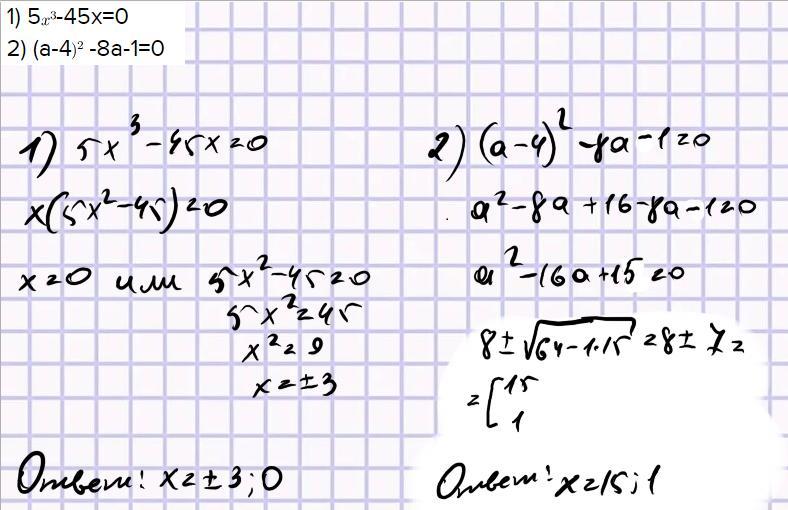 1) 5x³-45x=0
2) (a-4)² -8a-1=0
1) 5x³-45x=0
x(5x²-45)=0
x=0 или 5x²-45=0
5x²=45
x²=9
x=±3
Ответ: x=±3;0
2) (a-4)²-8a-1=0
a²-8a+16-8a-1=0
a²-16a+15=0
8±√64-1·15=8±7=
=[15
1
Ответ: x=15;1